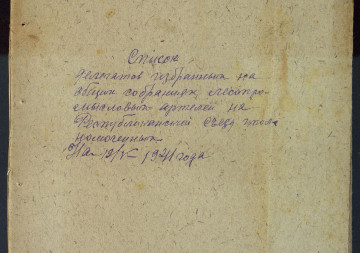 Список
делегатов избранных на
общих собраниях лесопро-
мысловых артелей на
Республиканский съезд
На 12/V- 1941 года